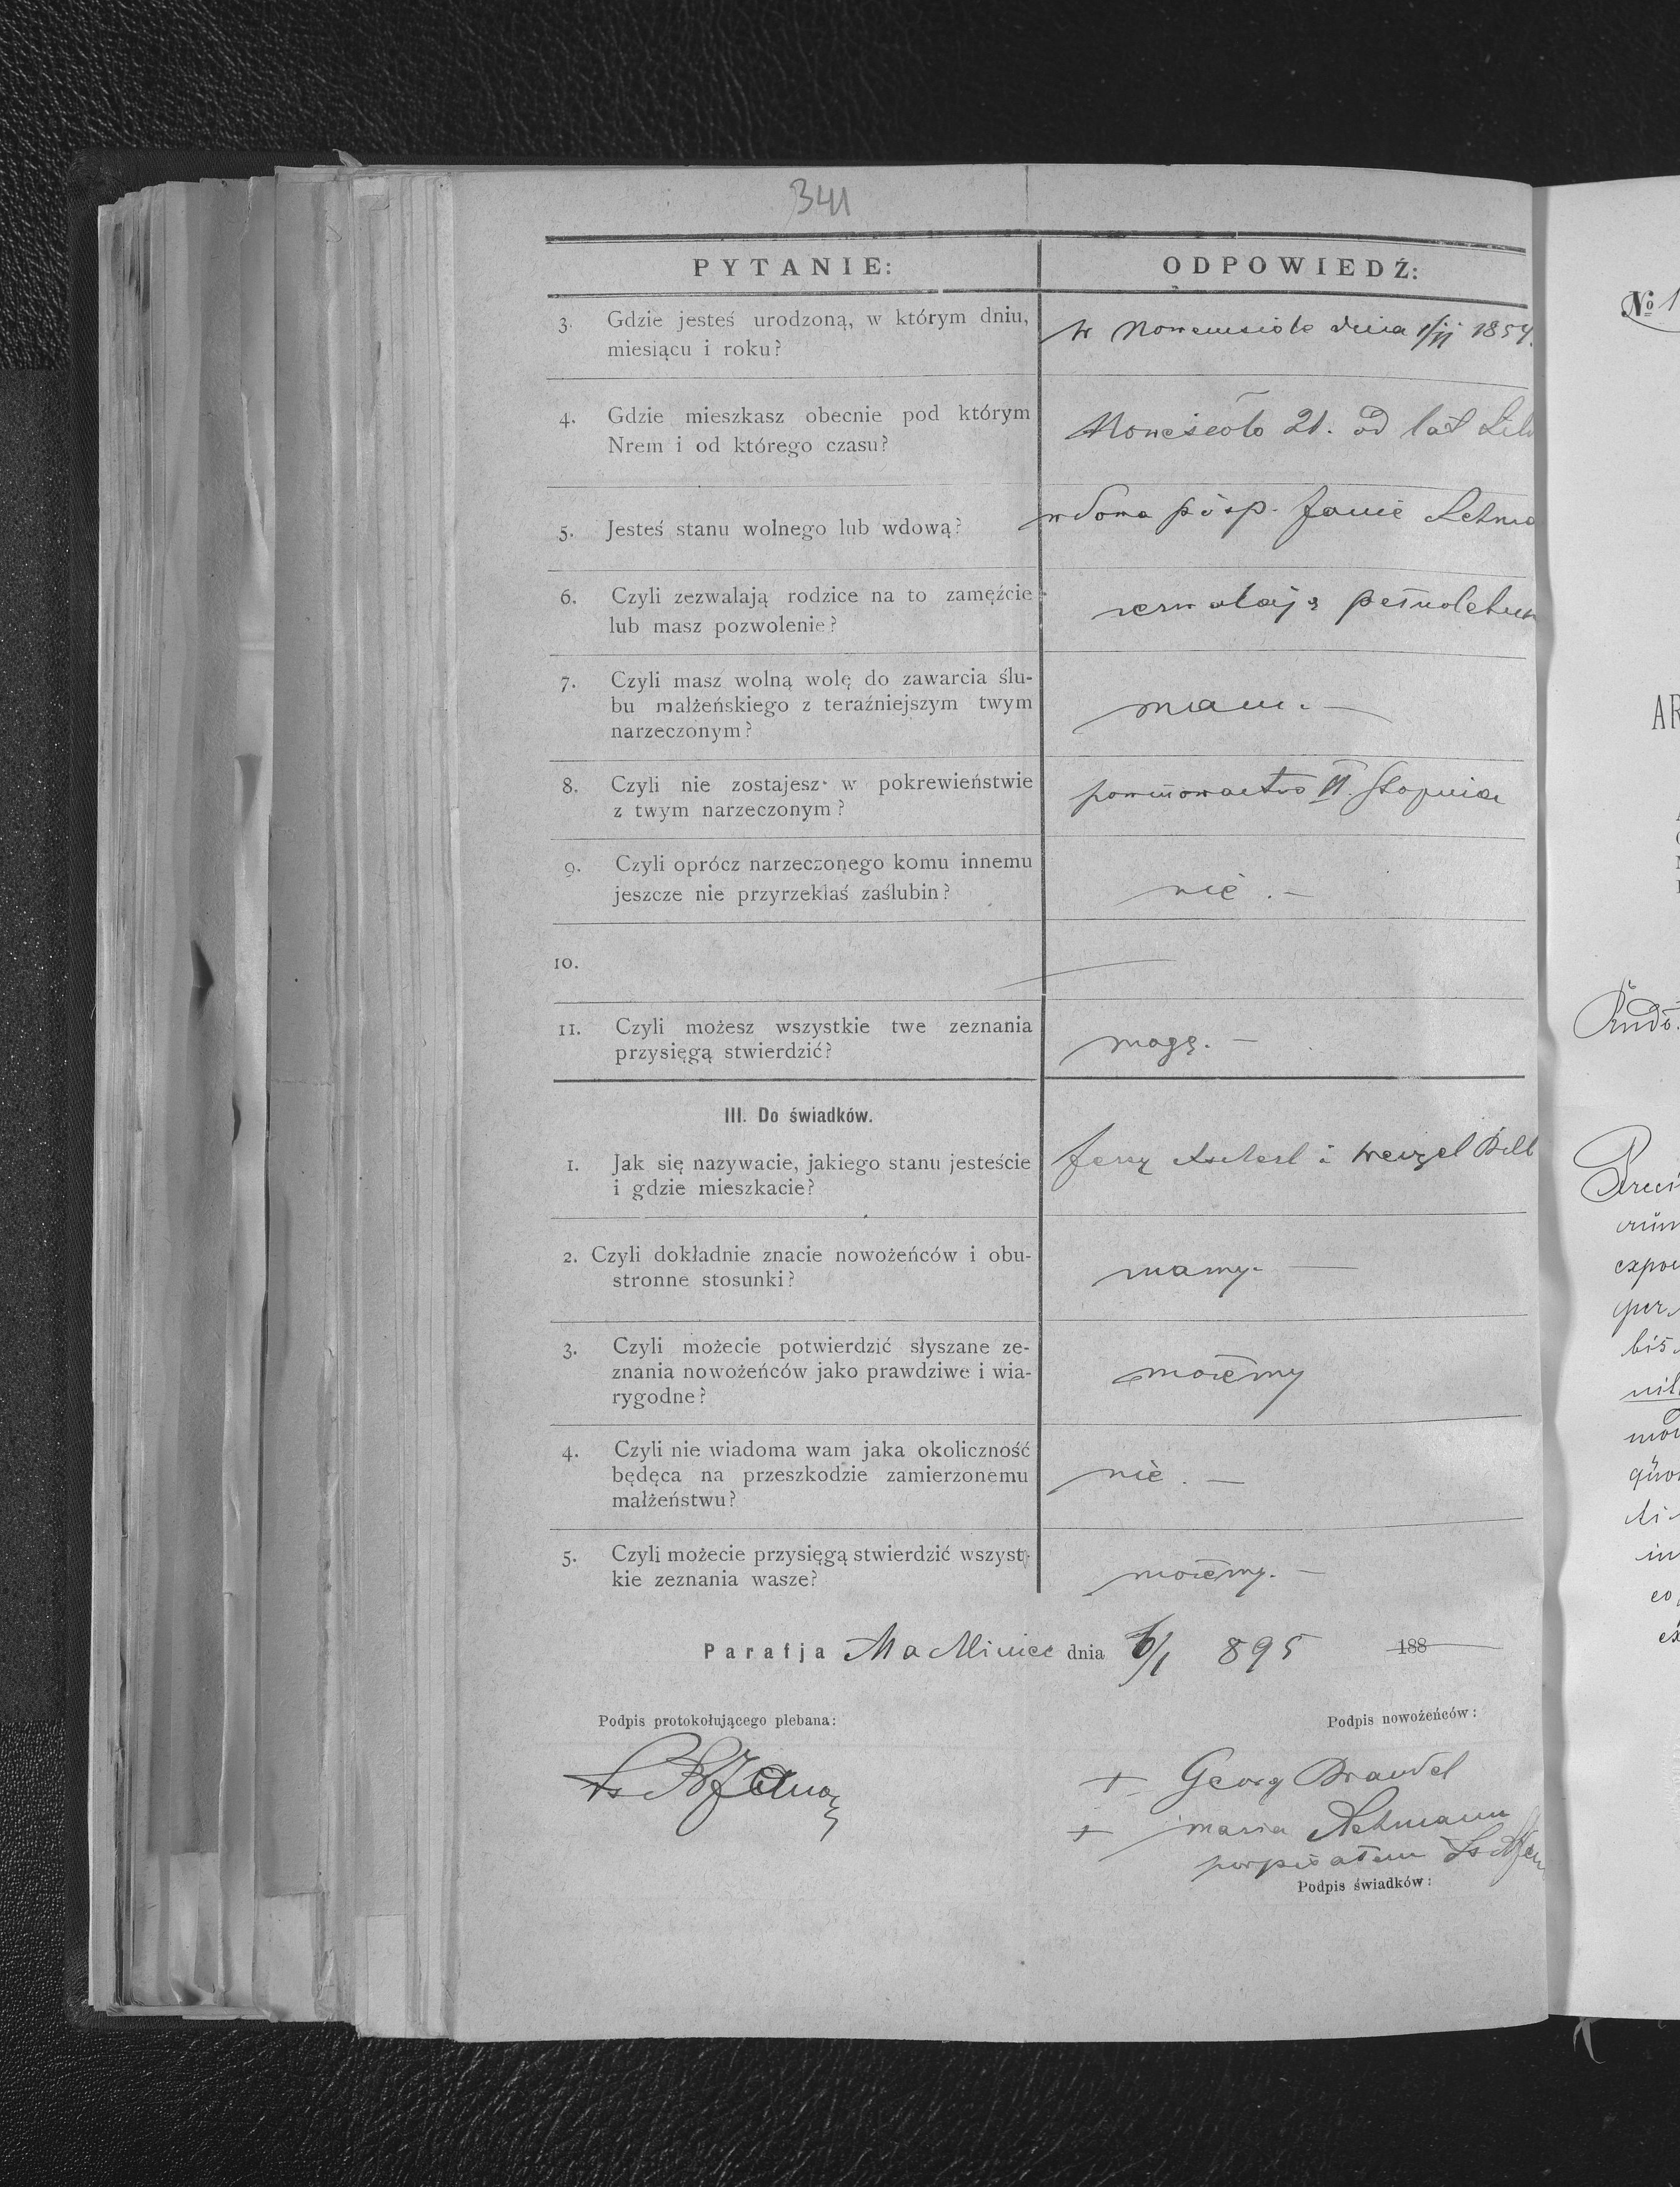 341
PYTANIE:
ODPOWIEDŹ:
3. Gdzie jesteś urodzoną, w którym dniu,
miesiącu i roku?
w Nowemsiole dnia 1/II 1854.
4. Gdzie mieszkasz obecnie pod którym
Nrem i od którego czasu?
Nowesioło 21. od lat
5. Jesteś stanu wolnego lub wdową?
wdowa po śp. Janie
6. Czyli zezwalają rodzice na to zamęźcie
lub masz pozwolenie?
7. Czyli masz wolną wolę do zawarcia ślu-
bu małżeńskiego z teraźniejszym twym
narzeczonym?
mam. —
8. Czyli nie zostajesz w pokrewieństwie
z twym narzeczonym?
powinowactwo II. stopnia
9. Czyli oprócz narzeczonego komu innemu
jeszcze nie przyrzekłaś zaślubin?
nie. —
10.
11. Czyli możesz wszystkie twe zeznania
przysięgą stwierdzić?
mogę. —
III. Do świadków.
1. Jak się nazywacie, jakiego stanu jesteście
i gdzie mieszkacie?
Jerzy i Wenzel
2. Czyli dokładnie znacie nowożeńców i obu-
stronne stosunki?
znamy. —
3. Czyli możecie potwierdzić słyszane ze-
znania nowożeńców jako prawdziwe i wia-
rygodne?
możemy
4. Czyli nie wiadoma wam jaka okoliczność
będęca na przeszkodzie zamierzonemu
małżeństwu?
nie. —
5. Czyli możecie przysięgą stwierdzić wszyst-
kie zeznania wasze?
możemy. —
Parafja Machliniec dnia 6/1 895 188
Podpis protokołującego plebana:
Podpis nowożeńców:
+ Georg Brandel
+ Maria
podpisałem
Podpis świadków:
№ 1